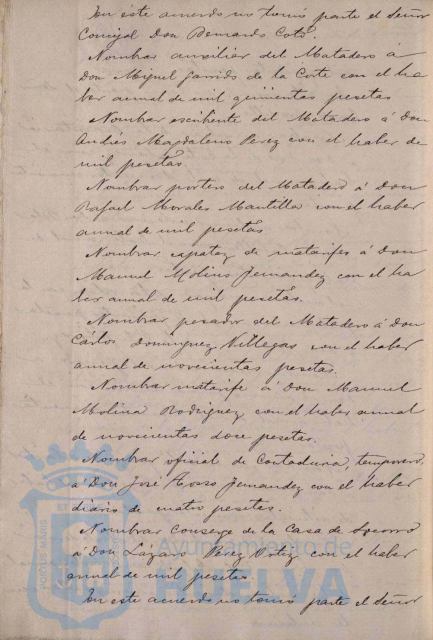 En este acuerdo no tomó parte el Señor
Concejal Don Bernardo Coto.
Nombrar auxiliar del Matadero á
Don Miguel Garrido de la Corte con el ha
ber anual de mil quinientas pesetas
Nombrar escribiente del Matadero á Don
Andrés Magdaleno Perez con el haber de
mil pesetas
Nombrar portero del Matadero á Don
Rafael Morales Mantilla con el haber
anual de mil pesetas
Nombrar capataz de matarifes á Don
Manuel Molina Fernandez con el ha
ber anual de mil pesetas.
Nombrar pesador del Matadero á Don
Cárlos Dominguez Villegas con el haber
anual de novecientas pesetas.
Nombrar matarife á Don Manuel
Molina Rodriguez con el haber anual
de novecientas doce pesetas.
Nombrar oficial de Contaduria, temporero,
á Don José Fernandez con el haber
diario de cuatro pesetas.
Nombrar Conserge de la Casa de Socorro
á Don Lázaro Perez Ortiz con el haber
anual de mil pesetas
En este acuerdo no tomó parte el Señor
Ayuntamiento de
HUELVA